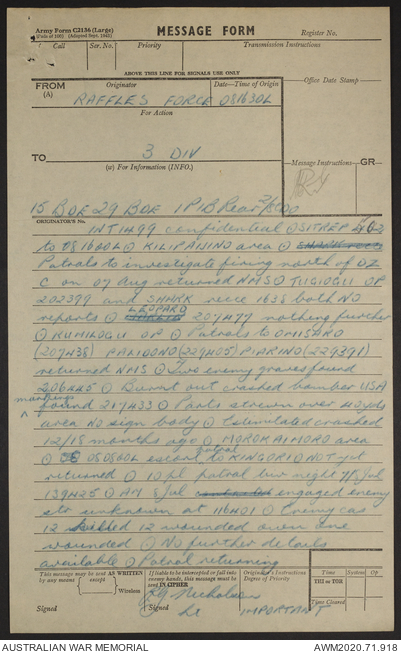 Army Form C2136 (Large)
(Pads of 100) (Adapted Sept. 1945)
MESSAGE FORM
Register No.
Call
Ser. No.
Priority
Transmission Instructions
ABOVE THIS LINE FOR SIGNALS USE ONLY
FROM
(A)
Originator
Date—Time of Origin
Office Date Stamp
RAFFLES FORCE 081630L
For Action
TO
3 DIV
(W) For Information (INFO.)
Message Instructions
GR
15 BDE 29 BDE 1 PIB Rear
ORIGINATOR'S No.
INT 1499 confidential ⊙ SITREP
to 081600L ⊙ KILIPAIJINO area ⊙
Patrols to investigate firing north of DZ
C on 07 Aug returned NMS ⊙ TUGIOGU OP
202399 and SHARK recce 1638 both NO
reports ⊙ LEOPARD 207477 nothing further
⊙ RUMILOGU OP ⊙ Patrols to OMISARO
(207438) PALIDONO (229405) PIARINO (229391)
returned NMS ⊙ Two enemy graves found
206445 ⊙ Burnt out crashed bomber USA
markings found 217433 ⊙ Parts strewn over 40 yds
area NO sign body ⊙ Estimated crashed
12/18 months ago ⊙ MOROKAIMORO area
⊙ 080800L escort patrol to KINGORI ⊙ NOT yet
returned ⊙ 10 pl patrol biv night 7 Jul
139425 ⊙ AM 8 Jul engaged enemy
str unknown at 116401 ⊙ Enemy cas
12 killed 12 wounded own one
wounded ⊙ No further details
available ⊙ Patrol returning
This message may be sent AS WRITTEN
by any means. (except) Wireless
If liable to be intercepted or fall into
enemy hands, this message must be
sent IN CIPHER
Originator's Instructions
Degree of Priority
Time
System
Op
THI or TOR
Time Cleared
Signed
Nicholson
Signed
Lt
IMPORTANT
AUSTRALIAN WAR MEMORIAL
AWM2020.71.918